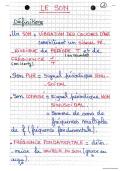 LE SON
Définitions
Un SON = VIBRATION DES COUCHES D'AIR
constituent un SIGNAL PÉ-
RIODIQUE de PÉRIODE T et de
FRÉQUENCE
Son PUR = Signal périodique SINU-
SOÏDAL
Son COMPLEXE = Signal périodique NON
SINUSOÏDAL
= Somme de sons de
fréquences multiples
de f (fréquence fondamentale)
FRÉQUENCE FONDAMENTALE = déter-
mine la HAUTEUR du SON (grave ou
aigu)